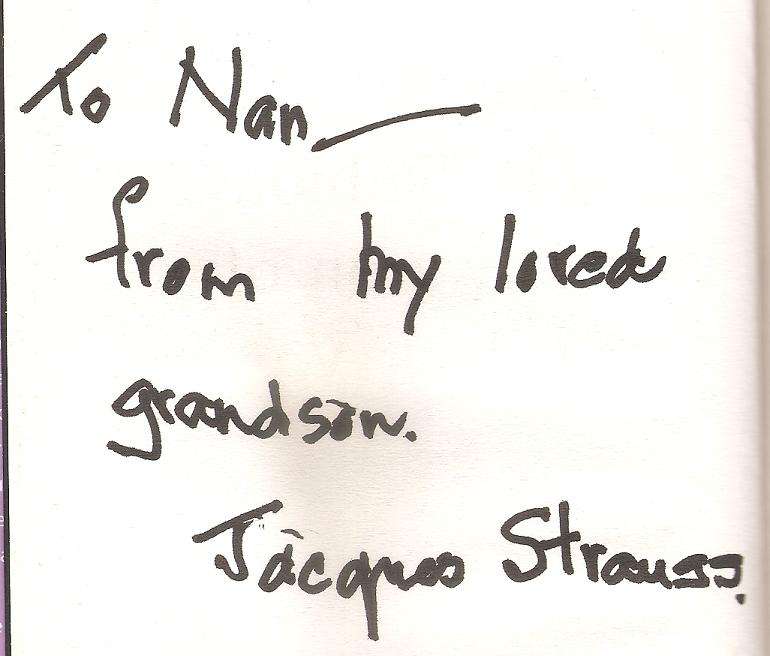 To Nan
from my loved
grandson.
Jacques Strauss.